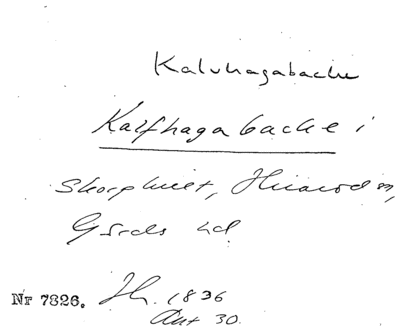 Kalvhagabacke
Kalfhagabacke i
Skorphult, Hiarsd sn,
Gärds hd
Nr 7826. Jh. 1836
Akt 30.